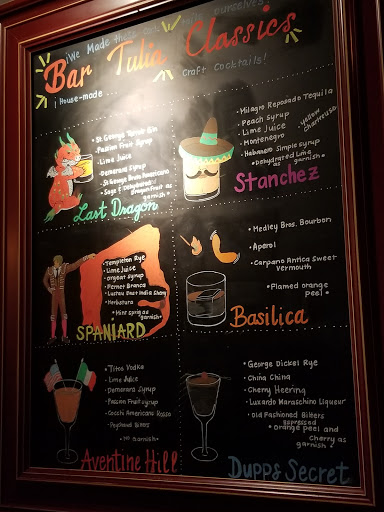 ¡We Made these
ourselves!
Bar Tulia Classics
¡ House-made ...
Craft Cocktails!
• St George Terroir Gin
• Passion Fruit Syrup
• Lime Juice
• Demerara Syrup
• St George Bruto Americano
• Sage & Dehydrated
Dragonfruit as
garnish •
Last Dragon
• Milagro Reposado Tequila
• Peach Syrup
• Lime Juice
• Montenegro
• Yellow
Chartreuse
• Habanero Simple Syrup
• Dehydrated Lime
as garnish •
Stanchez
• Templeton Rye
• Lime Juice
• Orgeat Syrup
• Fernet Branca
• Lustau East India Sherry
• Herbstura
• Mint Sprig as
garnish •
SPANIARD
• Medley Bros. Bourbon
• Aperol
• Carpano Antica Sweet
Vermouth
• Flamed orange
peel •
Basilica
• Titos Vodka
• Lime Juice
• Demerara Syrup
• Passion Fruit Syrup
• Cocchi Americano Rosa
• Peychaud Bitters
• no Garnish •
Aventine Hill
• George Dickel Rye
• China China
• Cherry Heering
• Luxardo Maraschino Liqueur
• Old Fashioned Bitters
• Expressed
orange peel and
cherry as
garnish •
Dupps Secret